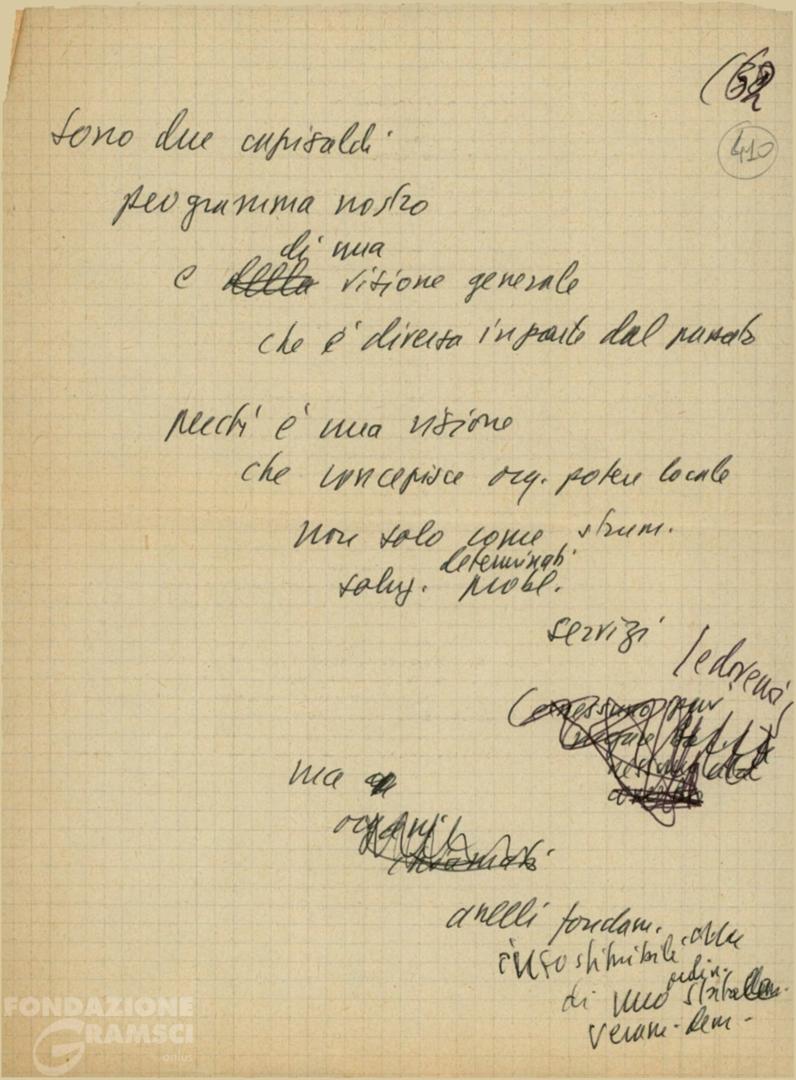 410
sono due capisaldi
programma nostro
di una
e della visione generale
che è diversa in parte dal passato
perché è una visione
che concepisce org. potere locale
non solo come strum.
determinati
soluz. probl.
servizi
ma
organi
chiamati
anelli fondam.
insostituibili
ordin.
di uno
veram. dem.
FONDAZIONE
GRAMSCI
onlus